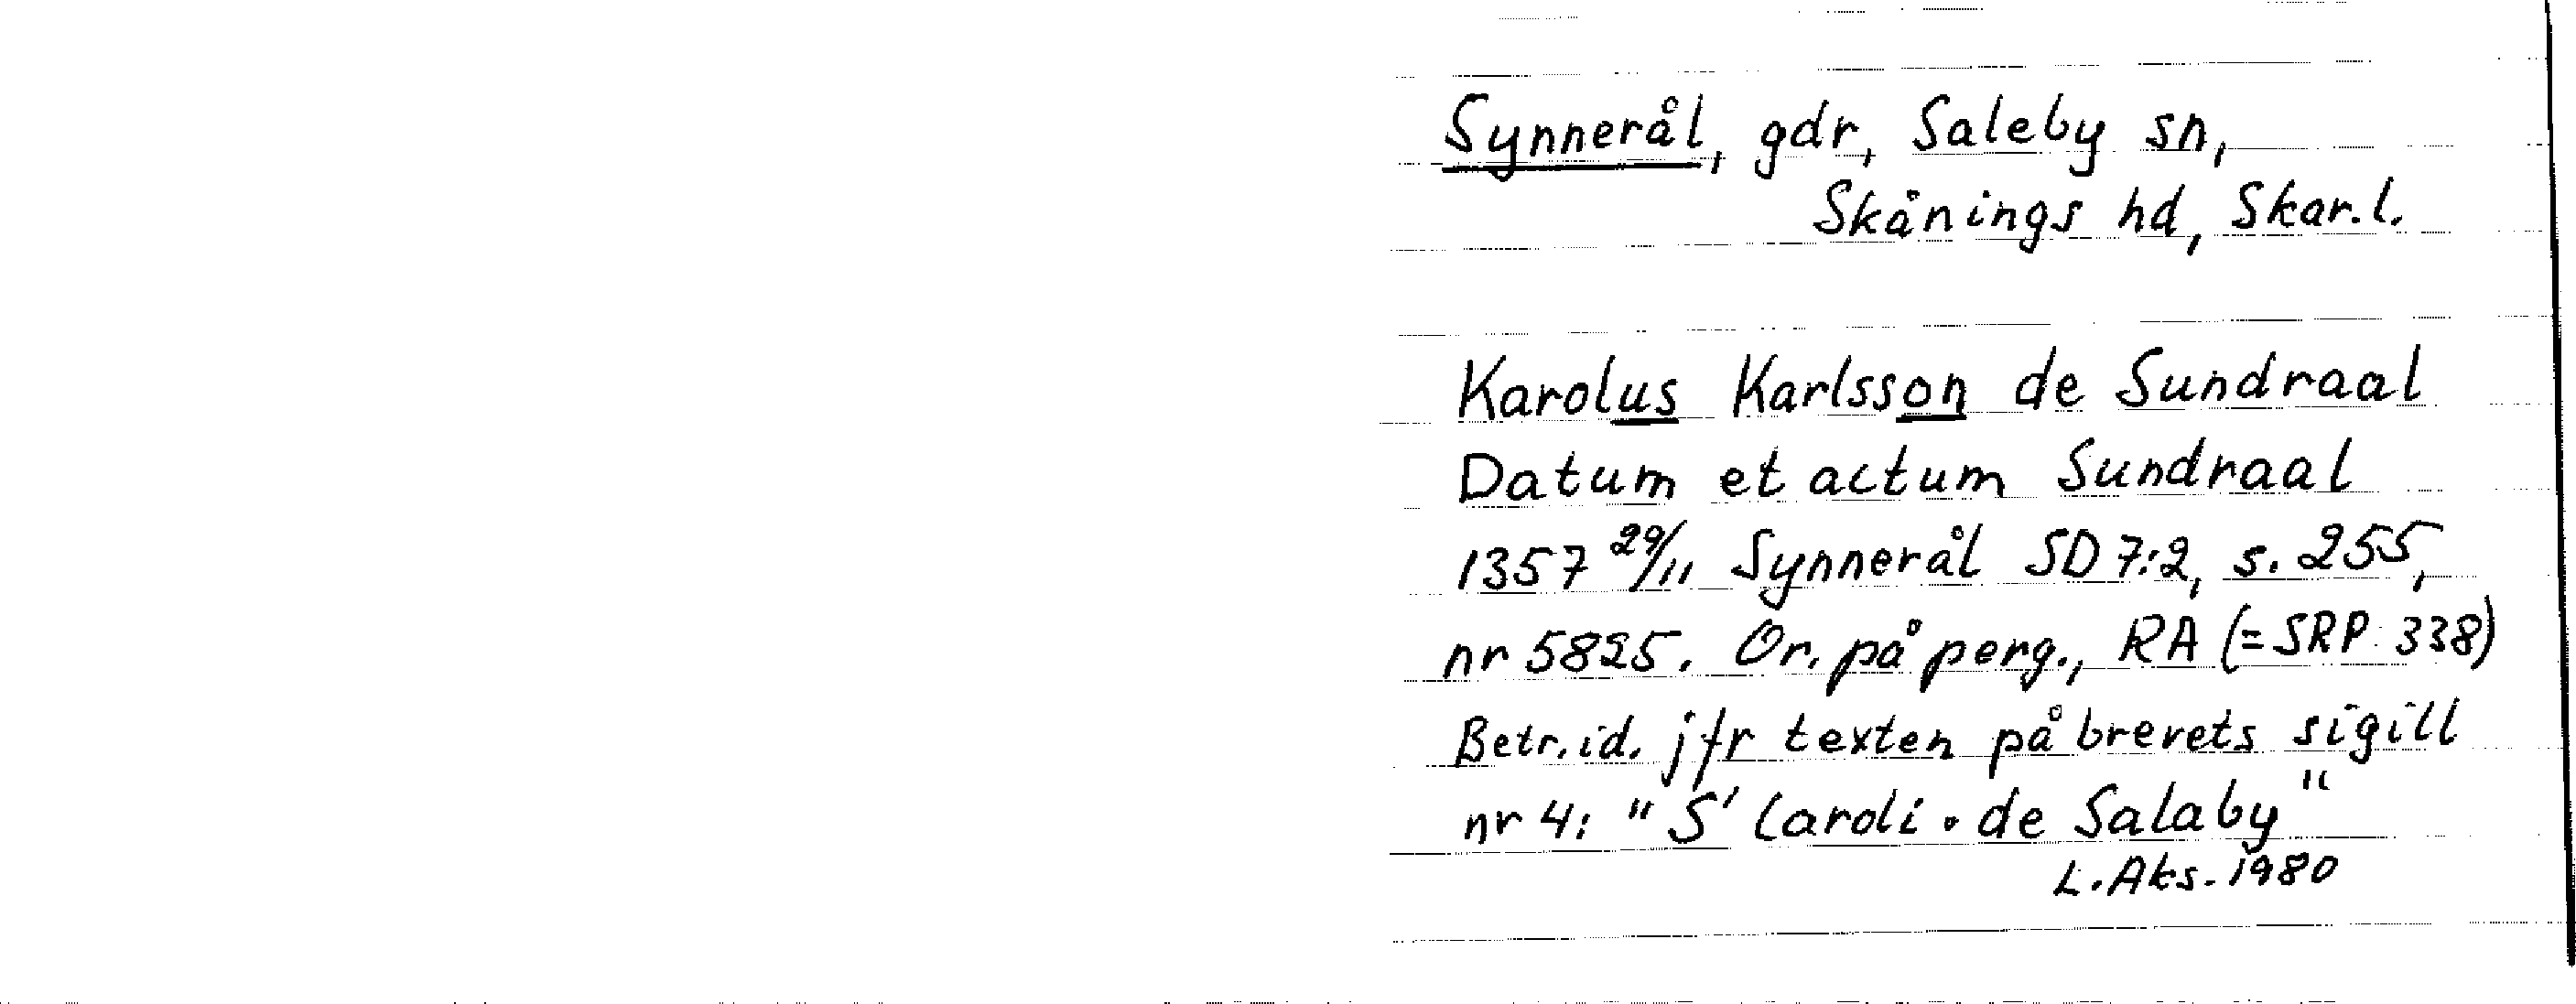 Synnerål, gdr, Saleby sn,
Skånings hd, Skar.l.
Karolus Karlsson de Sundraal
Datum et actum Sundraal
1357 29/11 Synnerål SD 7:2, s. 255,
nr 5825. Or. på perg., RA (=SRP 338)
Betr. id. jfr texten på brevets sigill
nr 4: "S' Caroli · de Salaby"
L. Aks. 1980